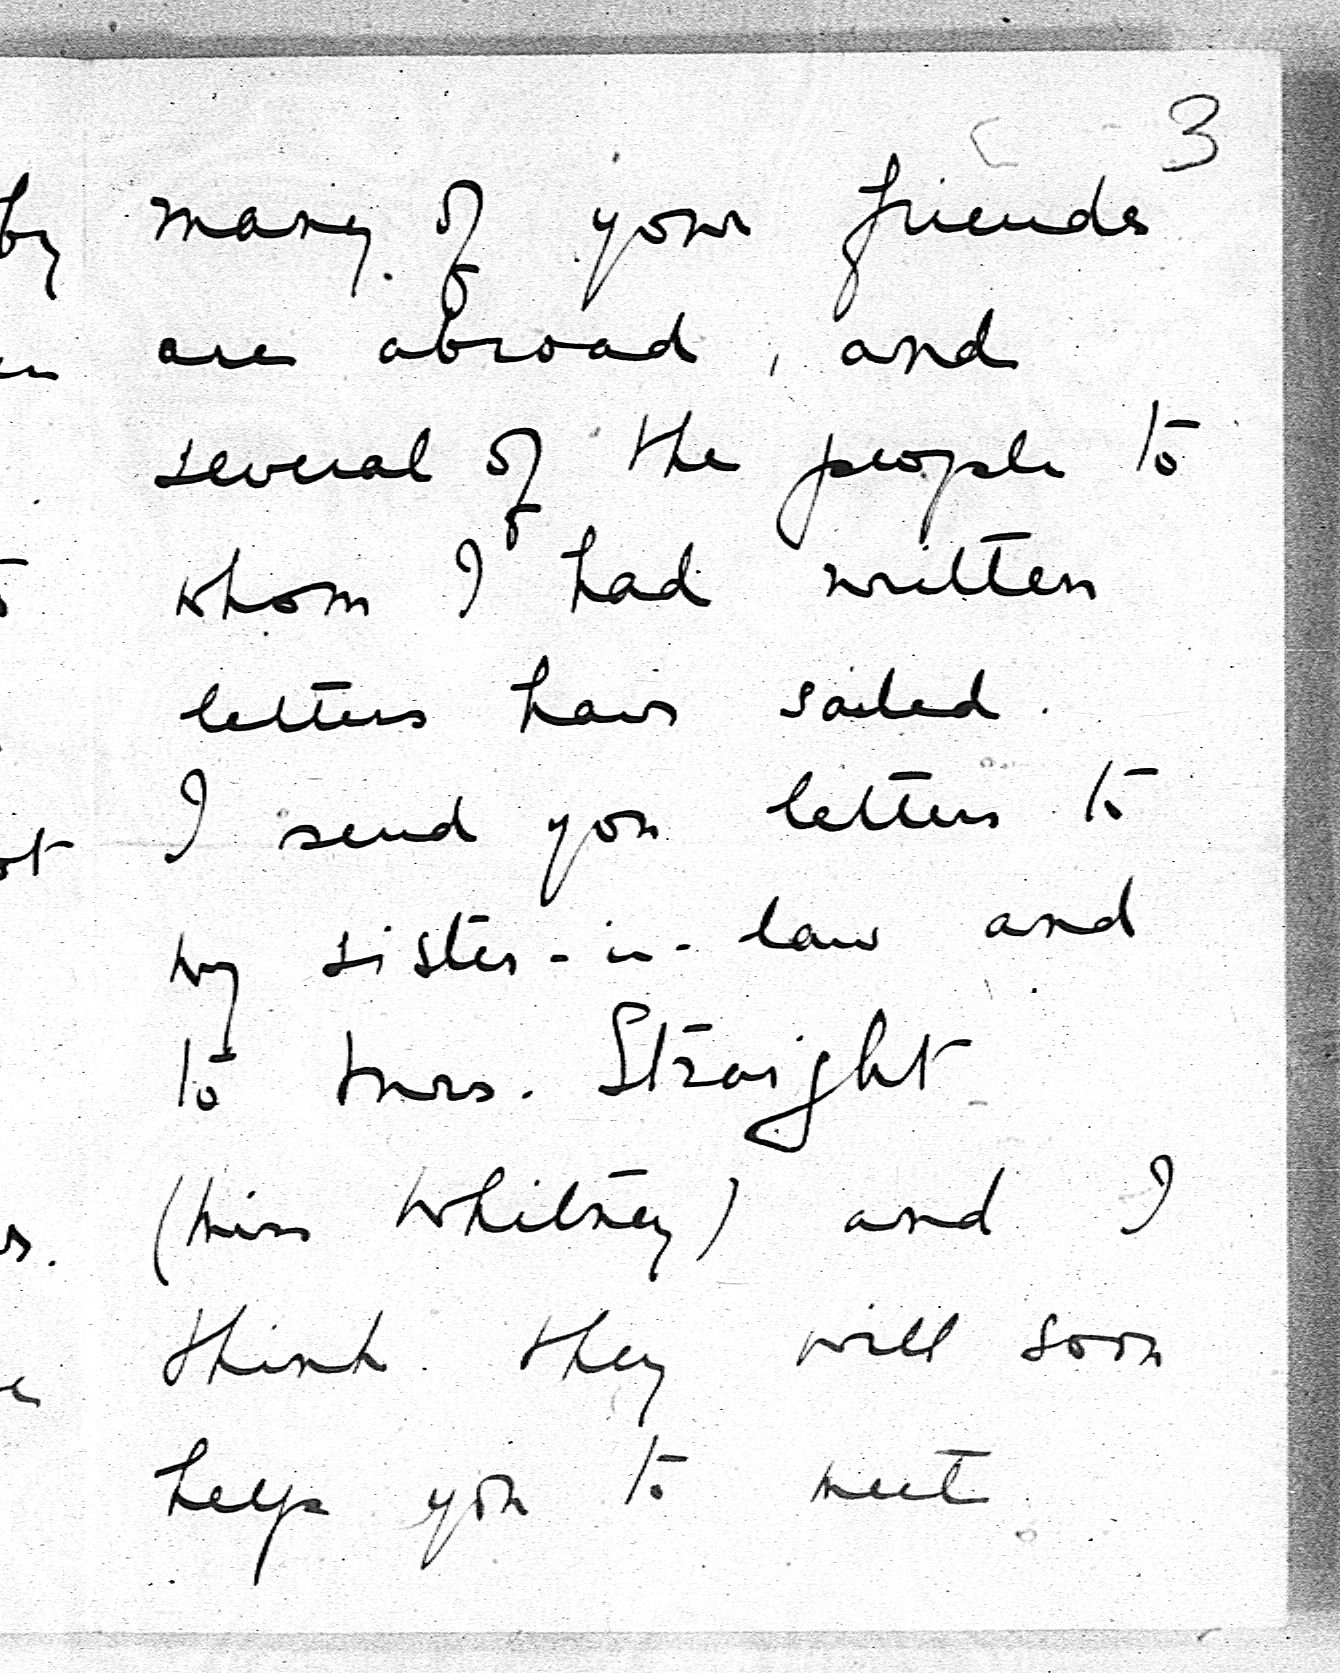 3
many of your friends
are abroad, and
several of the people to
whom I had written
letters have sailed.
I send you letters to
my sister-in-law and
to Mrs. Straight
(Miss Whitney) and I
think they will soon
help you to meet